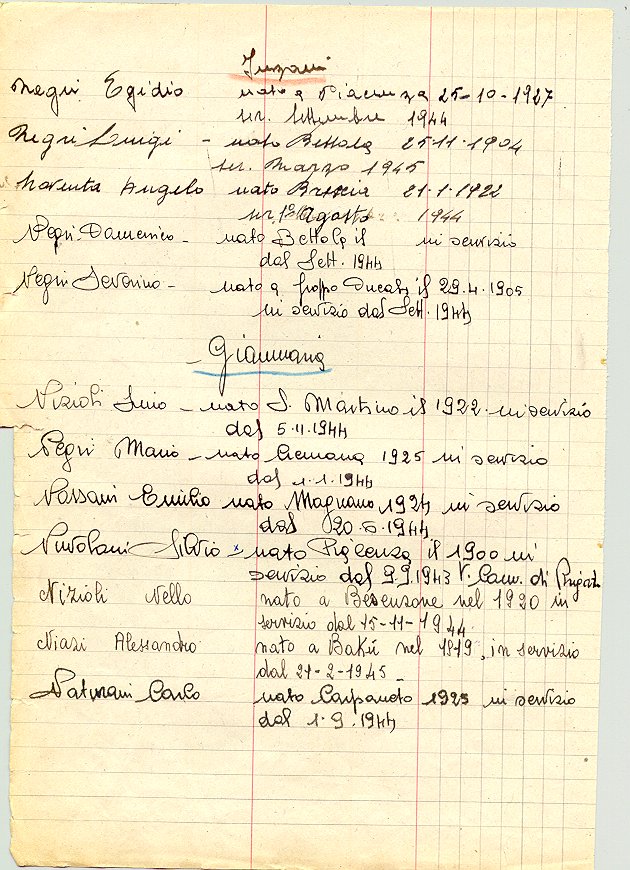 Inzani
Negri Egidio nato a Piacenza 25-10-1927
ser. Settembre 1944
Negri Luigi - nato Bettola 25.11.1904
ser. Marzo 1945
Noventa Angelo nato Brescia 21.1.1922
ser 1° Agosto 1944
Negri Domenico - nato Bettola il in servizio
dal Sett. 1944
Negri Severino - nato a Groppo Ducale il 29.4.1905
in servizio dal Sett. 1944
- Giammaria
Nizioli - nato S. Martino il 1922 in servizio
dal 5.11.1944
Negri Mario - nato Cremona 1925 in servizio
dal 1.1.1944
Nassani Emilio nato Magnano 1924 in servizio
dal 1944
Nuvolani Silvio x - nato Piacenza il 1900 in
servizio dal 9.9.1943 V. Com. di
Nizioli Nello nato a Besenzone nel 1920 in
servizio dal 15-11-1944
Niasi Alessandro nato a Bakú nel 1919, in servizio
dal 21-2-1945
Carlo nato Carpaneto 1925 in servizio
dal 1.9.1944